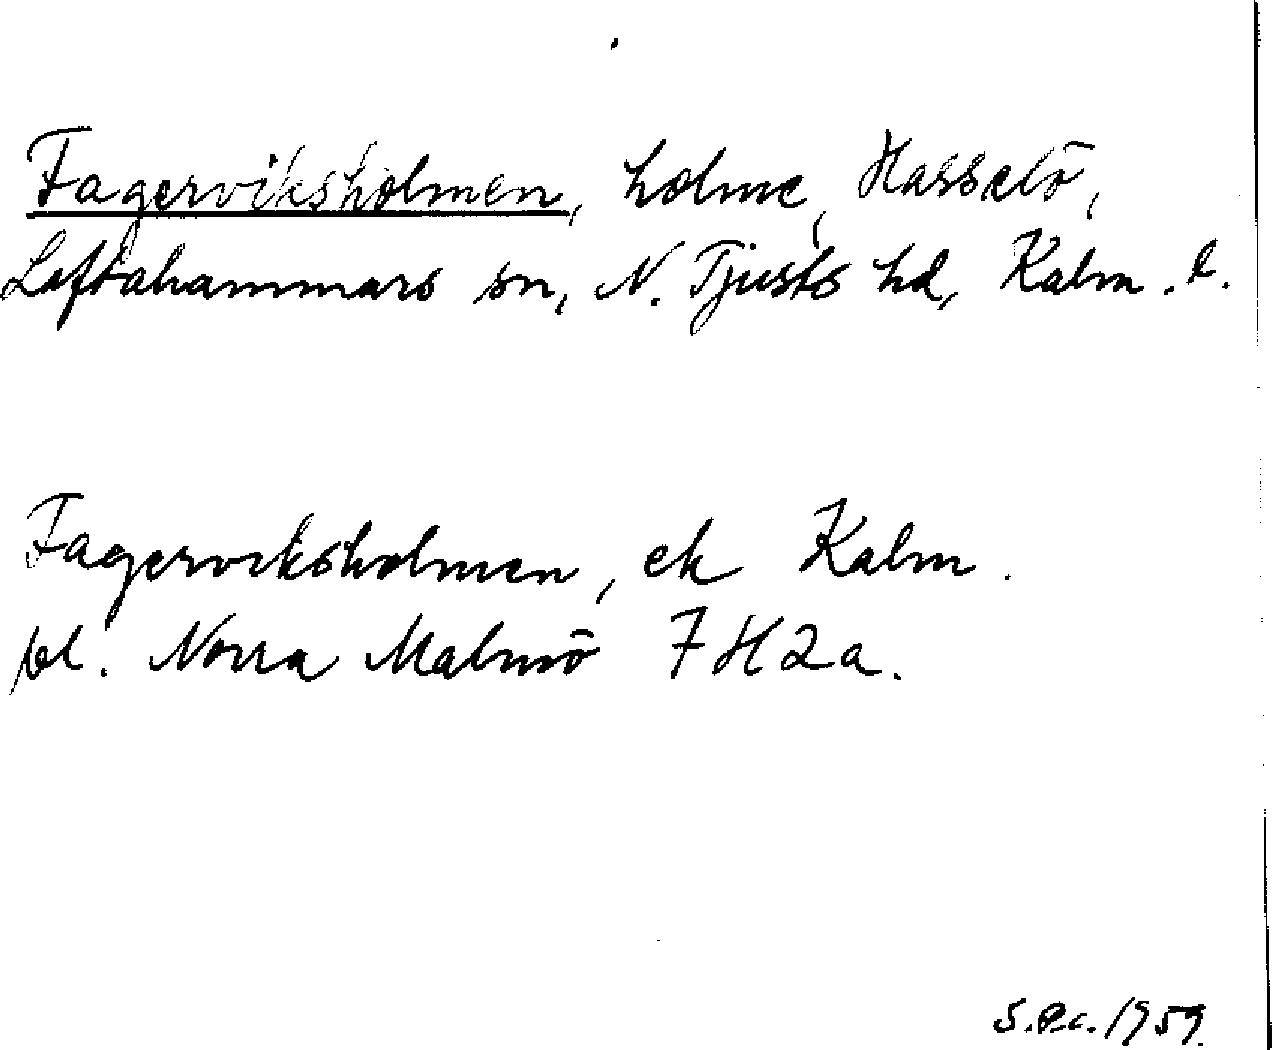 Fagerviksholmen, holme, Hasselö,
Loftahammars sn, N. Tjusts hd, Kalm. l.
Fagerviksholmen, ek Kalm.
bl. Norra Malmö 7H2a.
1959.